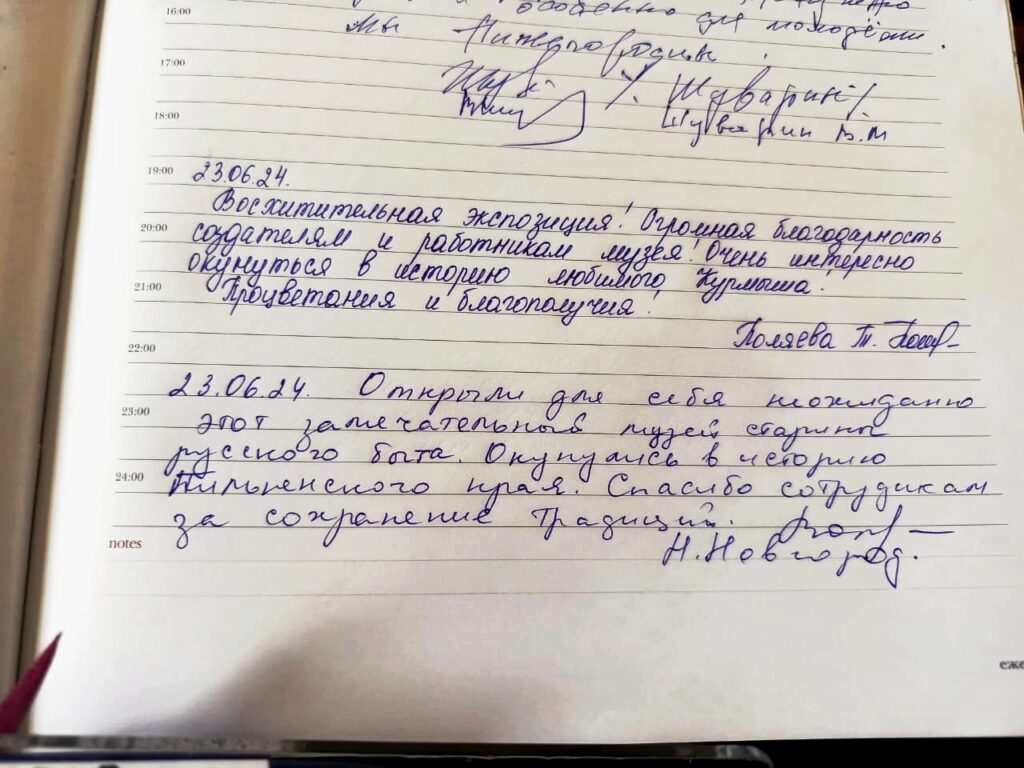 16:00
особенно для молодёжи.
Мы Нижегородцы!
17:00
Шуварин
18:00
Шуварин В.М
19:00 23.06.24.
Восхитительная экспозиция! Огромная благодарность
20:00 создателям и работникам музея! Очень интересно
окунуться в историю любимого Курмыша!
21:00 Процветания и благополучия!
Поляева Т.
22:00
23.06.24. Открыли для себя неожидано
23:00 этот замечательный музей старины
русского быта. Окунулись в историю
24:00 Пильненского края. Спасибо сотрудикам
за сохранение традиций.
notes Н.Новгород.
еже